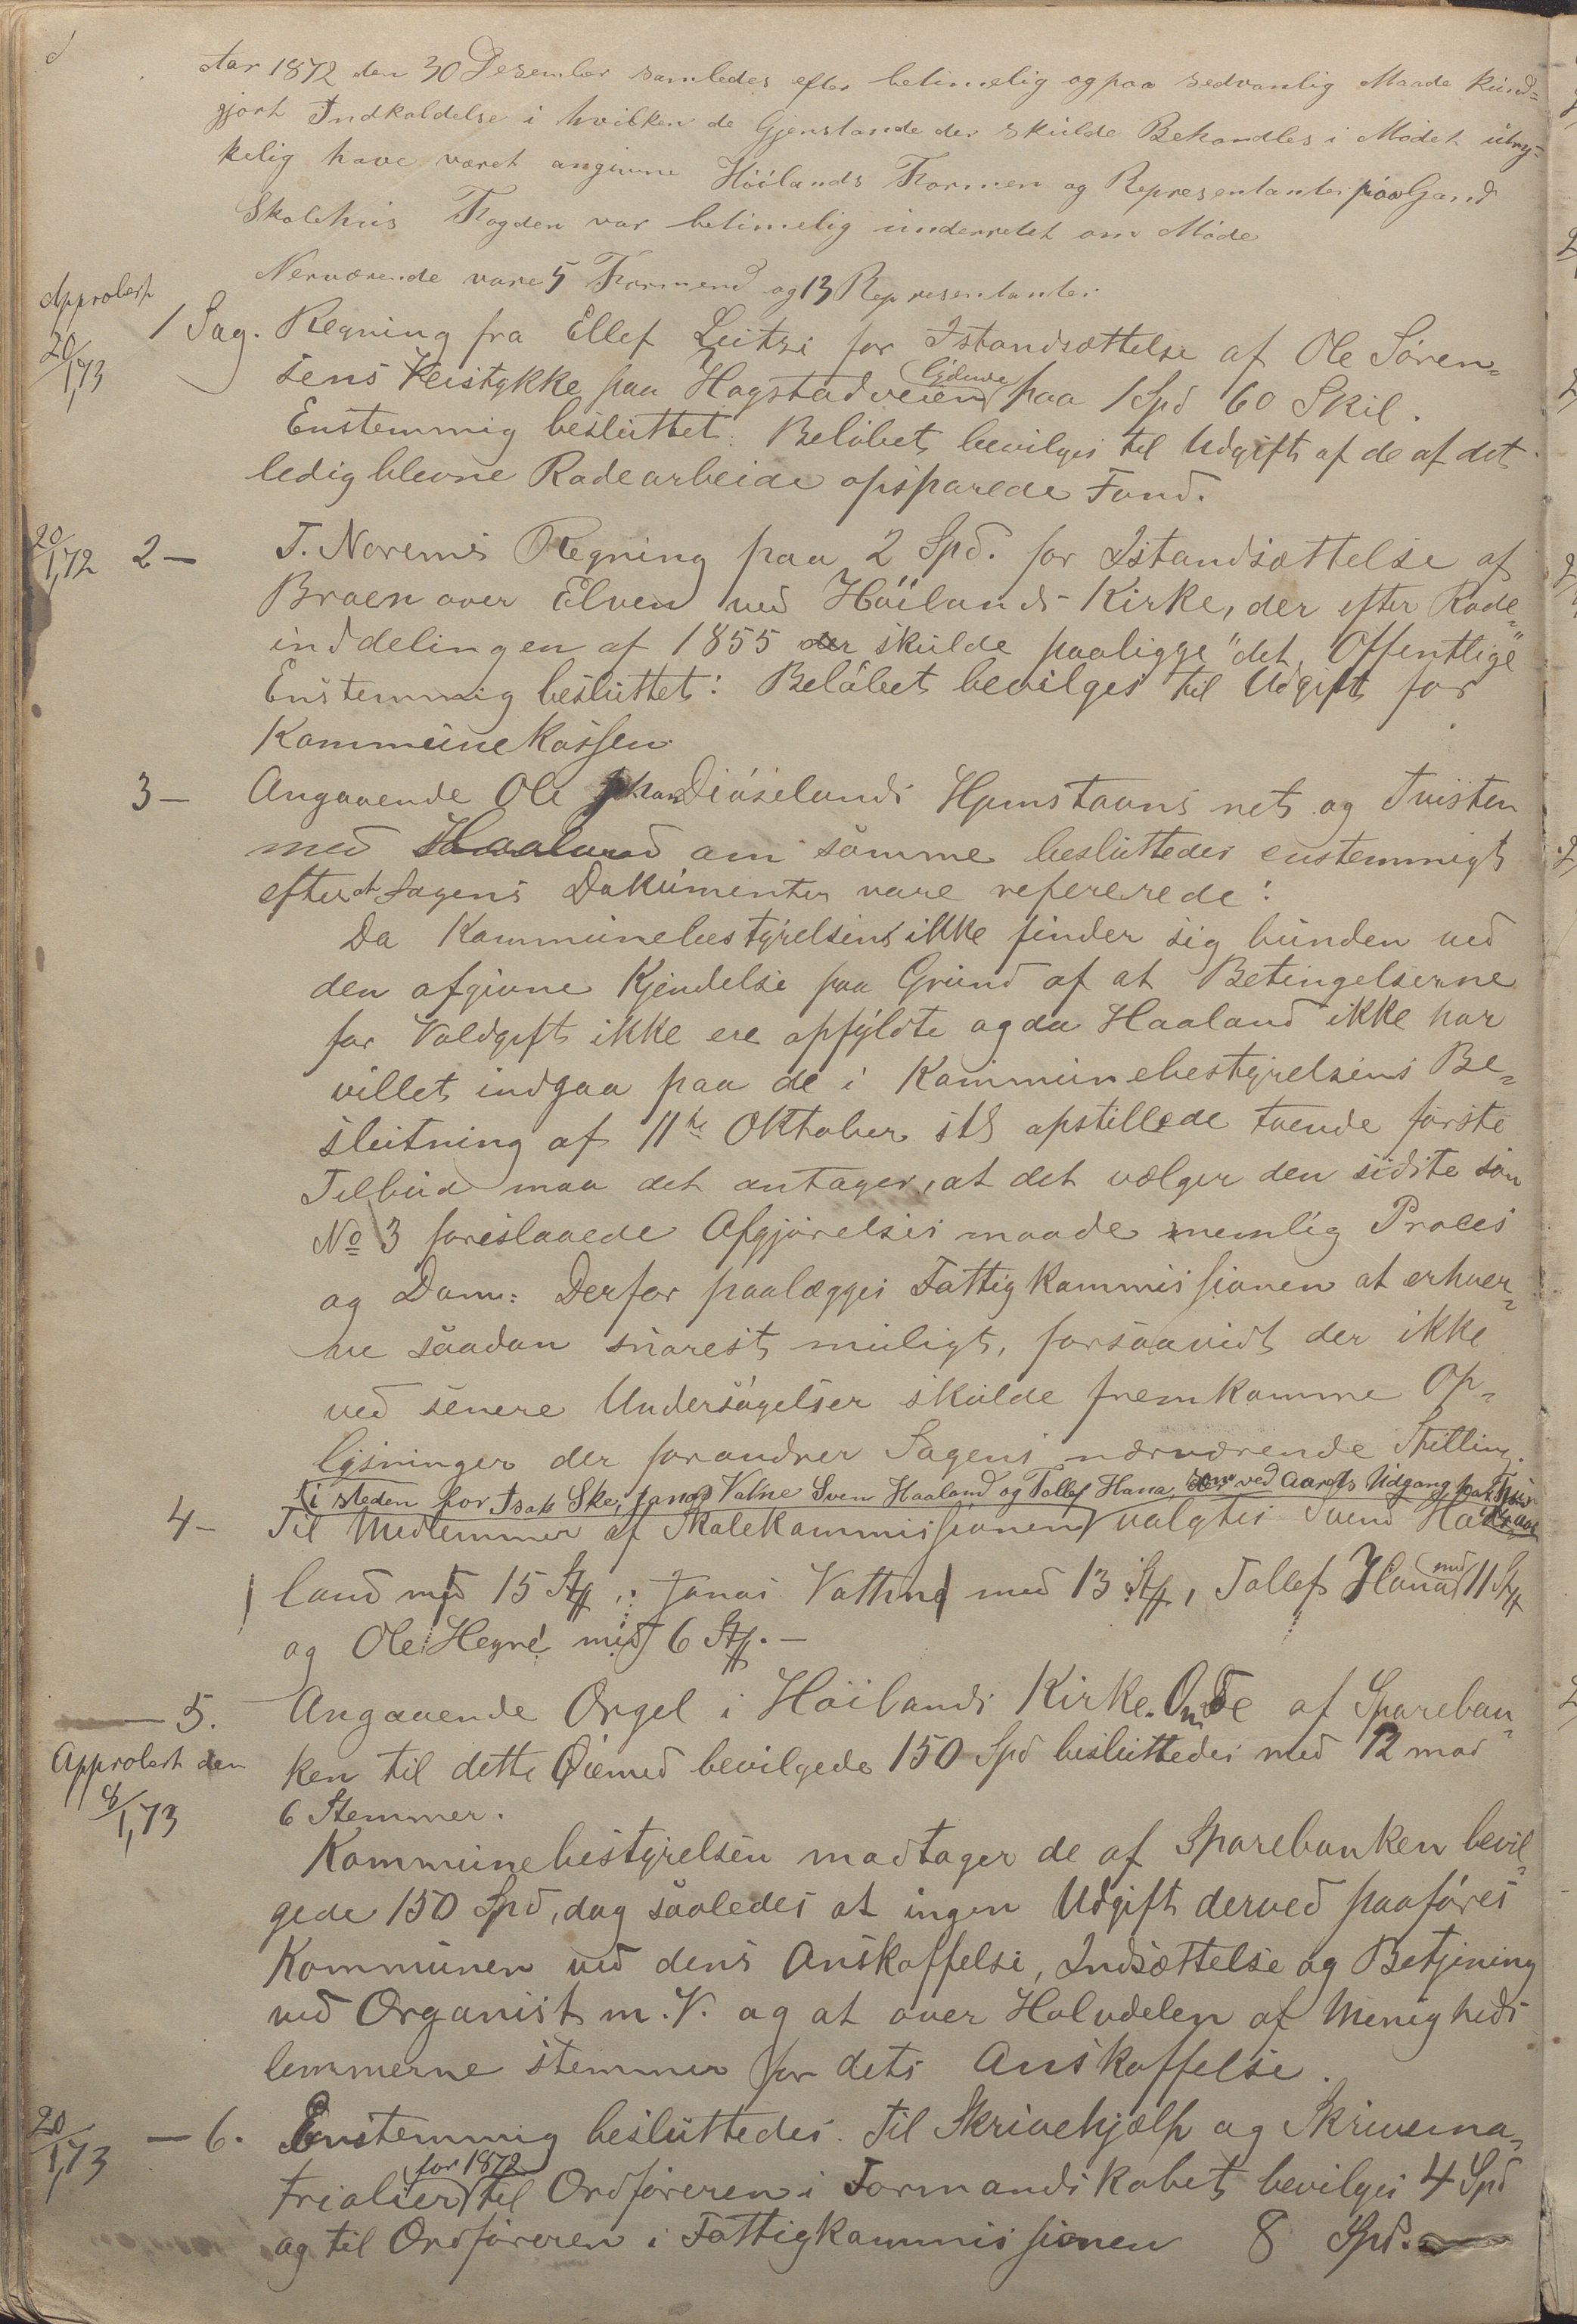 Aar 1872 den 30 Desember samledes efter betimelig og paa sedvanlig Maade kund-
gjort Indkaldelse i hvilken de Gjenstande der skulde Behandles i Mødet utry-
kelig have været angivne Höilands Formen og Representanter paa Gand
Skolehus Fogden var betimelig underrettet om Møde
Nerværende vare 5 Formend og 13 Representanter
Approbert
20/1,73
1 Sag. Regning fra Ellef Leitze for Istandsættelse af Ole Sören-
sens Veistykke paa Hogstadveien lydende paa 1 Spd 60 Skil.
Enstemmig besluttet: Belöbet bevilges til Udgift af de af det
ledig blevne Rodearbeide opsparede Fond.
20/1,72 2- T. Norems Regning paa 2 Spd. for Istandsættelse af
Broen over Elven ved Höilands Kirke, der efter Rode-
inddelingen af 1855 skulde paaligge "det Offentlige"
Enstemmig besluttet: Belöbet bevilges til Udgift for
Kommunekassen.
3- Angaaende Ole Johan Diúselands Hjemstavns ret og Tvisten
med Haaland om samme besluttedes enstemmigt
efterat Sagens Dokumenter vare refererede:
Da Kommunebestyrelsen ikke finder sig bunden ved
den afgivne Kjendelse paa Grund af at Betingelserne
for Voldgift ikke ere opfyldte og da Haaland ikke har
villet indgaa paa de i Kommunebestyrelsens Be-
slutning af 11te Oktober sidstl opstillede tvende første
Tilbud maa det antages, at det vælger den sidste som
No 3 foreslaaede Afgjörelses maade nemlig Proces
og Dom: Derfor paalægges Fattigkommissionen at erhver-
ve saadan snarest muligt, forsaavidt der ikke
ved senere Undersögelser skulde fremkomme Op-
lysninger der forandrer Sagens nærværende Stilling.
i steden for Isak Ske, Jonas Vatne Sven Haaland og Tollef Hana, som ved Aarets Udgang har Tjent
4- Til Medlemmer af Skolekommissionen valgtes Svend Haa-
land med 15 St, Jonas Vatne med 13 St, Tollef Hana med 11 St
og Ole Hegre med 6 St.-
5. Angaaende Orgel i Höilands Kirke. Om De af Spareban-
Approbert den
8/1,73
ken til dette Øiemed bevilgede 150 Spd besluttedes med 12 mod
6 Stemmer.
Kommunebestyrelsen modtager de af Sparebanken bevil-
gede 150 Spd, dog saaledes at ingen Udgift derved paaføres
Kommunen ved dens Anskaffelse, Indsættelse og Betjening
ved Organist m. V. og at over Halvdelen af Menigheds
lemmerne stemmer for dets Anskaffelse.
20/1,73 - 6. Enstemmig besluttedes. Til Skrivehjælp og Skrivema-
trialier for 1872 til Ordföreren i Formandskabet bevilges 4 Spd
og til Ordföreren i Fattigkommissionen 8 Spd.